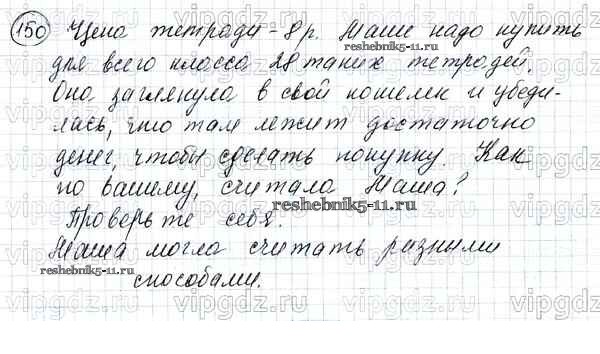 150 Цена тетради - 8 р. Маше надо купить
для всего класса 28 таких тетрадей.
Она заглянула в свой кошелек и убеди-
лась, что там лежит достаточно
денег, чтобы сделать покупку. Как
по вашему, считала Маша?
Проверьте себя.
Маша могла считать разными
способами.
vipgdz.ru
reshebnik5-11.ru
reshebnik5-11.ru
reshebnik5-11.ru